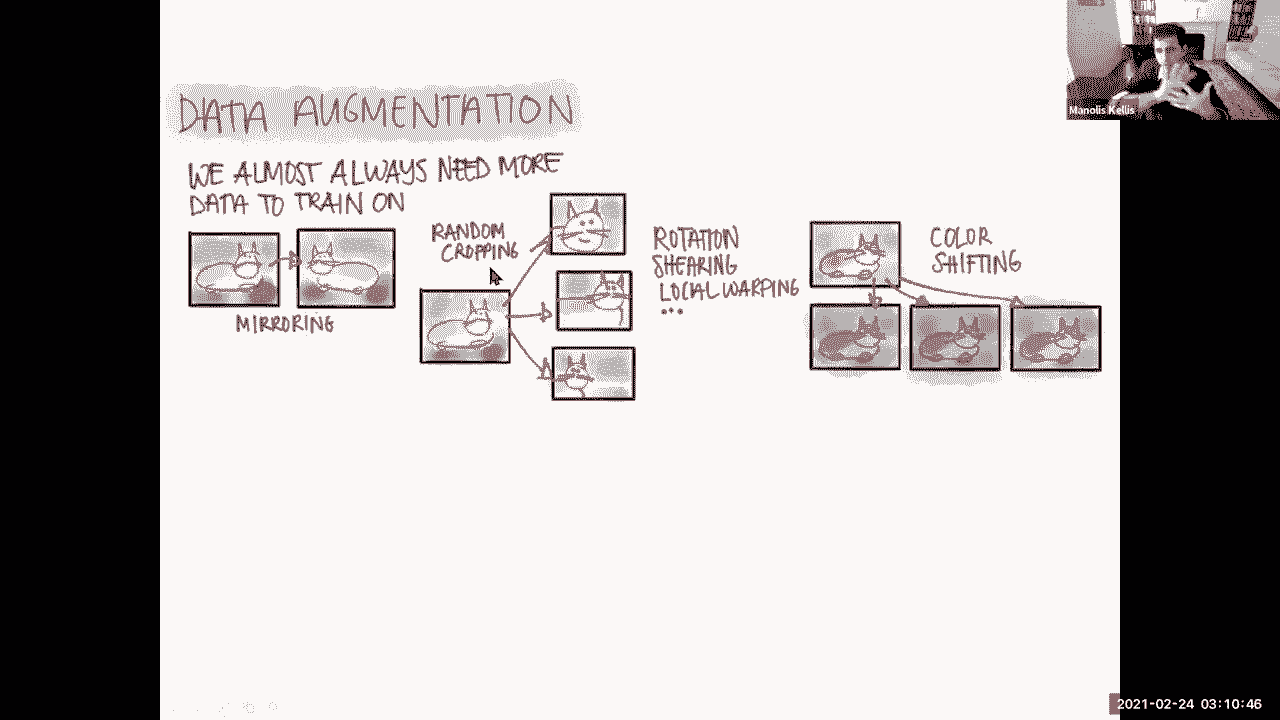 Manolis Kellis
DATA AUGMENTATION
WE ALMOST ALWAYS NEED MORE
DATA TO TRAIN ON
MIRRORING
RANDOM
CROPPING
ROTATION
SHEARING
LOCAL WARPING
...
COLOR
SHIFTING
2021-02-24 03:10:46